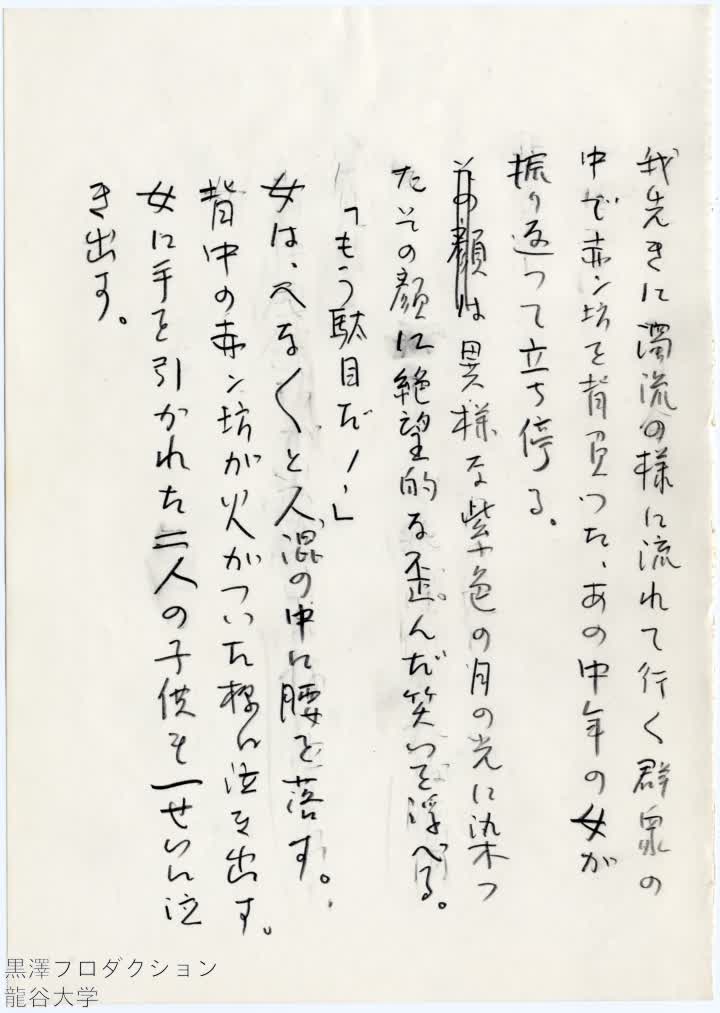 我先きに濁流の様に流れて行く群衆の
中で赤ン坊を背負つた、あの中年の女が
振り返つて立ち停る。
その顔は異様な紫色の月の光に染つ
たその顔に絶望的な歪んだ笑いを浮べる。
「もう駄目だ！」
女は、へな〱と人混の中に腰を落す。
背中の赤ン坊が火がついた様に泣き出す。
女に手を引かれた二人の子供も一せいに泣
き出す。
黒澤プロダクション
龍谷大学